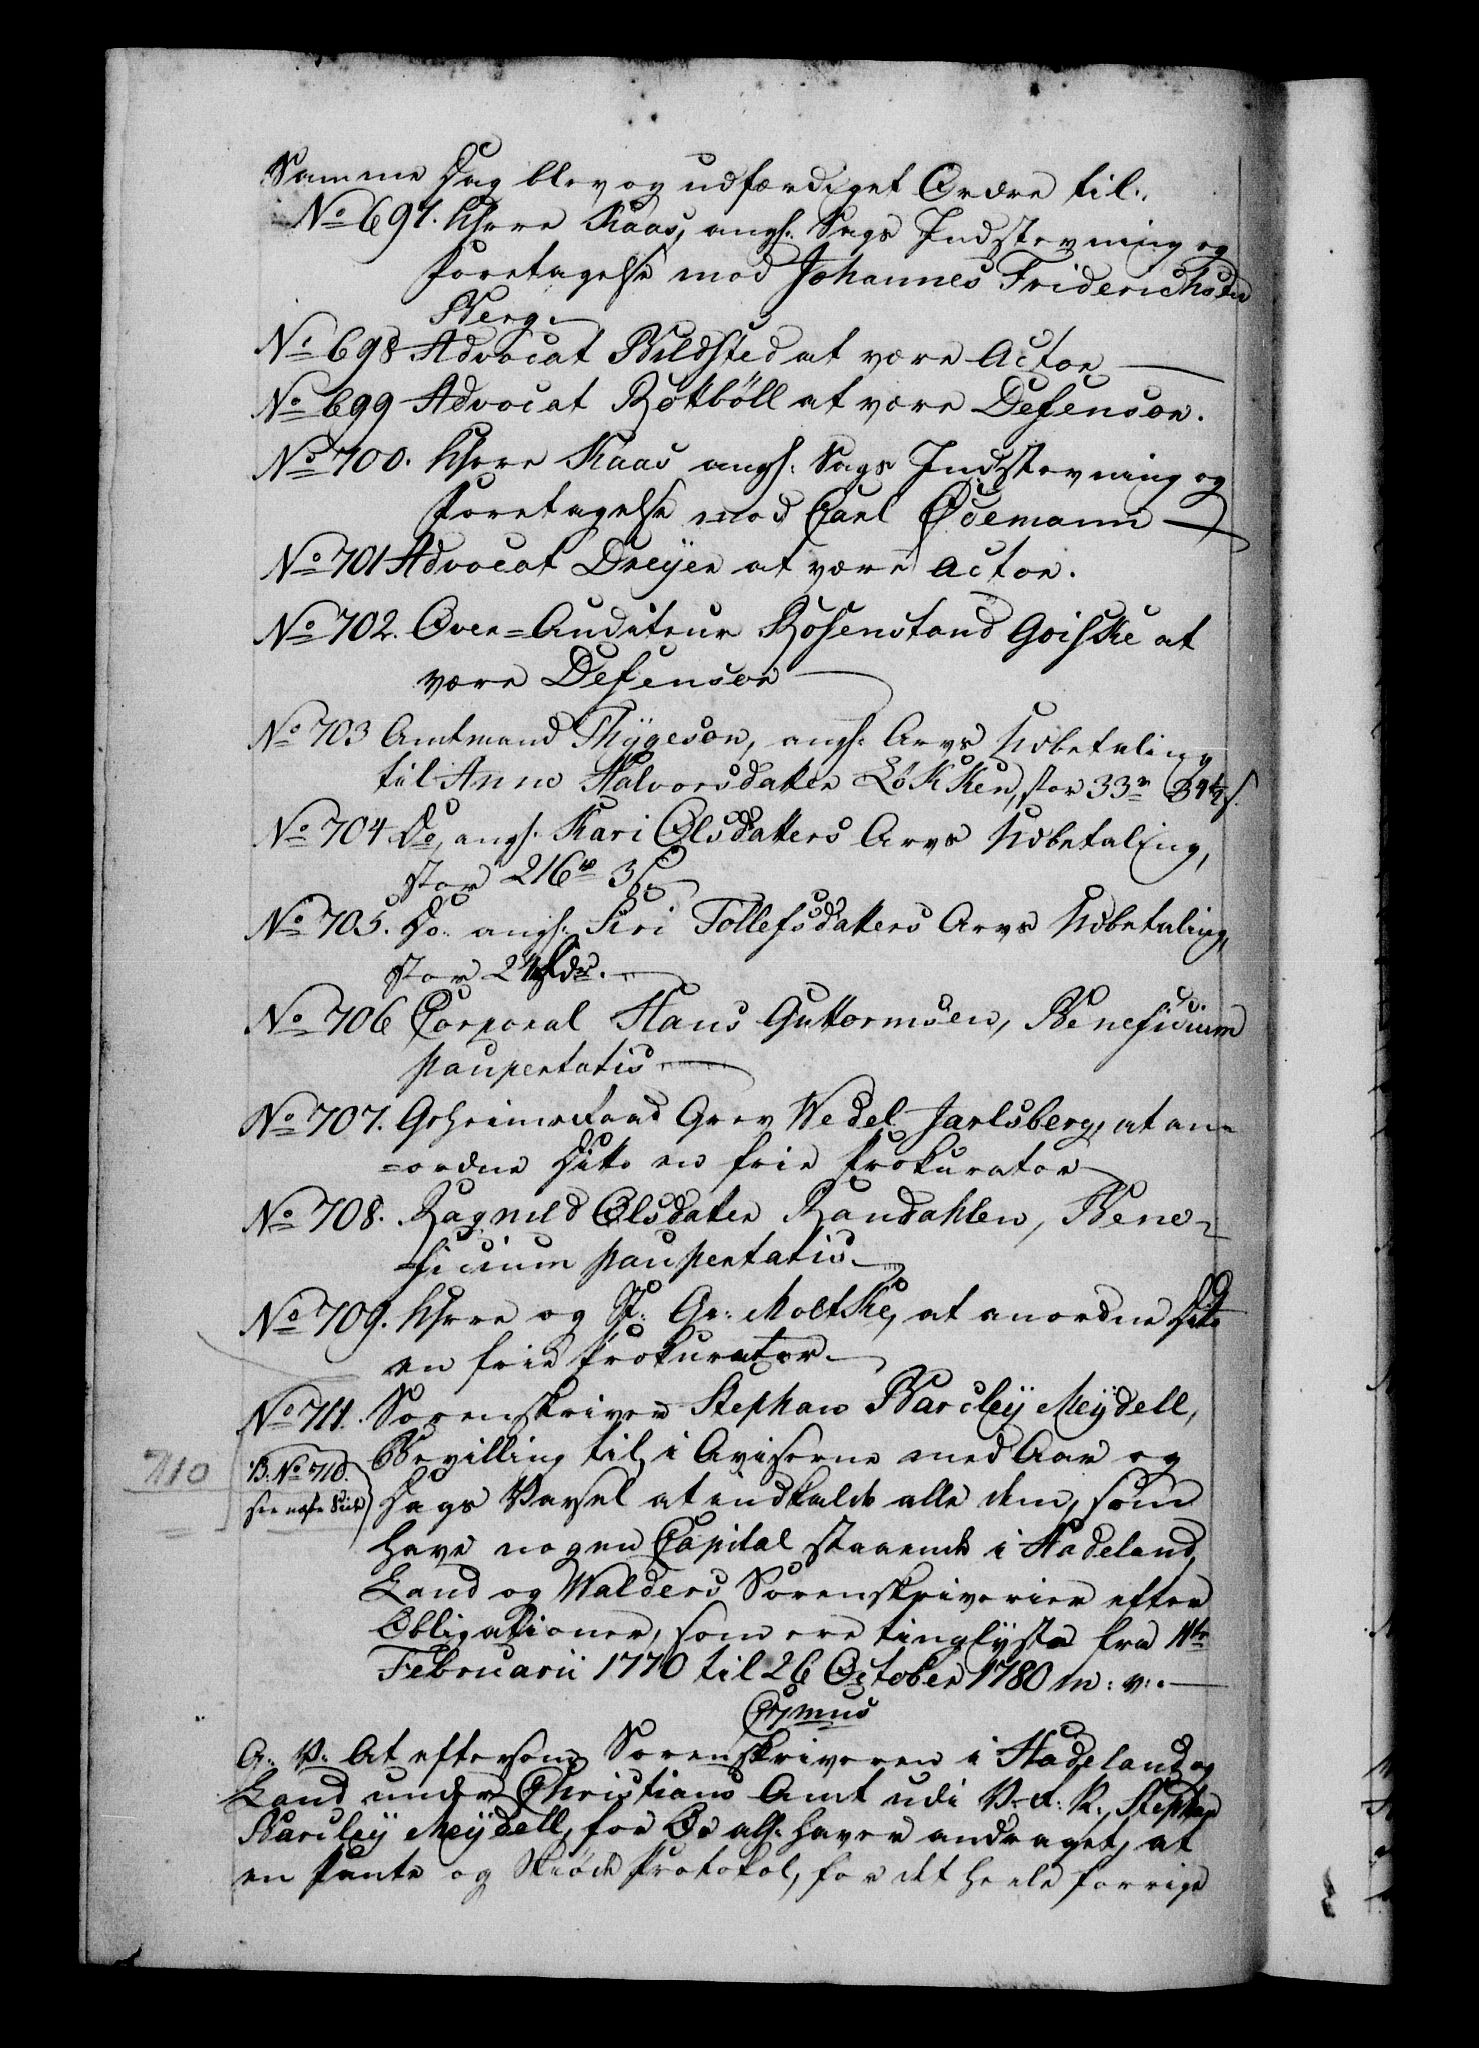 Samme Dag blev og udfærdiget Ordre til:
No 697. Hrre Kaas, angl: Sags Indstevning og
foretagelse mod Johannes Friderichsen
Berg.
No 698 Advocat Bildsted at være Actor
No 699 Advocat Rottböll at være Defensor.
No 700. Hrre Kaas angl: Sags Indstevning og
foretagelse mod Carl Ödemann
No 701 Advocat Dreyer at være Actor.
No 702. Over-Auditeur Rosenstand Goiske at
være Defensor
No 703 Amtmand Thygeson, angl: Arvs Udbetaling
til Anne Halvorsdatter Løkken, stor 33 r
No 704 Do, angl: Kari Olsdatters Arvs Udbetaling,
stor 216 r 3 s
No 705. Do. angl: Siri Tollefsdatters Arvs Udbetaling,
stor
No 706 Corporal Hans Guttormsen, Beneficium
paupertatis
No 707. Geheimeraad Grev Wedel Jarlsberg, at an
=ordne Dito en frie Prokurator
No 708. Ragnild Olsdatter Randahlen, Bene-
=ficium paupertatis.
No 709. Hrre og St: Gr: Moltke, at anordne Dito
en frie Prokurator.
No 711. Sorenskriver Stephan Barcley Meydell,
Bevilling til, i Aviserne med Aar og
710
B. No 710.
see næste Side
Dags Varsel at indkalde alle dem, som
have nogen Capital staaende i Hadeland,
Land og Walders Sorenskriverier efter
Obligationer, som ere tinglyste fra 11te
Februarii 1770 til 26 October 1780 m: v:.
C7mus
G: V: At eftersom Sorenskriveren i Hadeland og
Land under Christians Amt udi V: R: N:, Stephan
Barcley Meydell, for Os all: haver andraget, at
en Pante og Skiøde Protokol, for det heele forrige